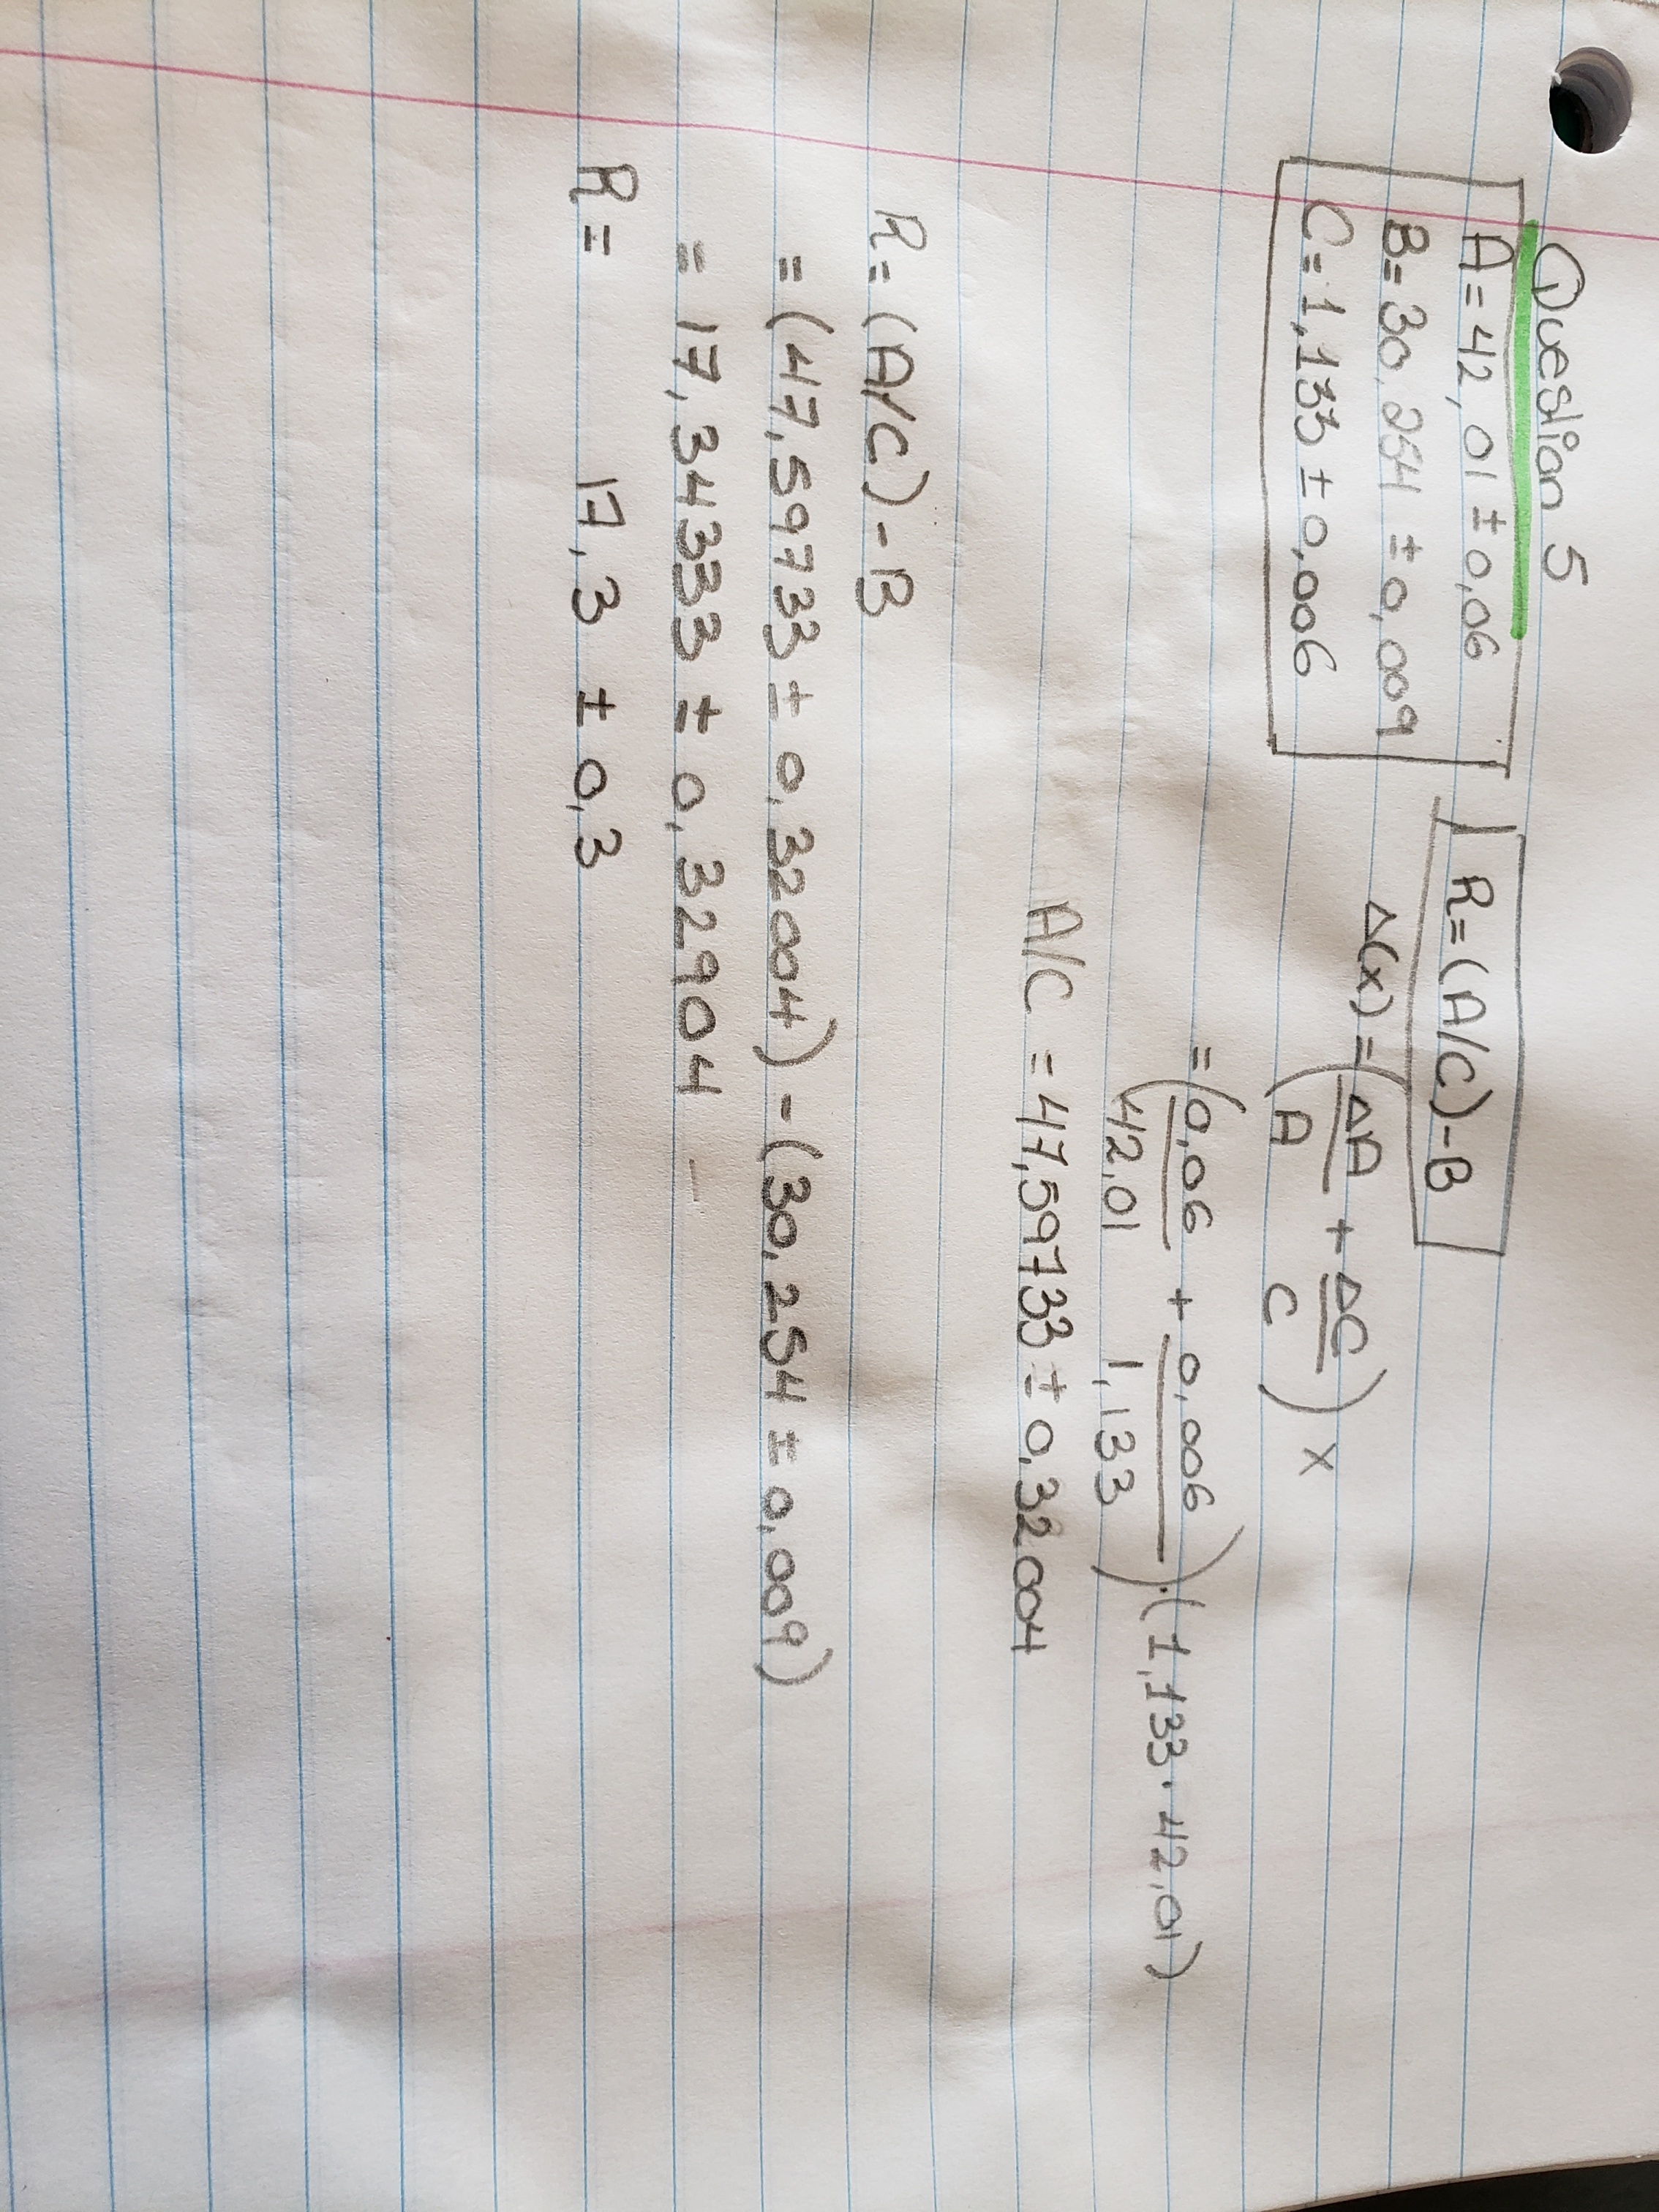 Question 5
A = 42,01 ± 0,06
B = 30,254 ± 0,009
C = 1,133 ± 0,006
R = (A/C) - B
Δ(x) = (ΔA/A + ΔC/C) x
= (0,06/42,01 + 0,006/1,133) · (1,133 · 42,01)
A/C = 47,59733 ± 0,32004
R = (A/C) - B
= (47,59733 ± 0,32004) - (30,254 ± 0,009)
= 17,34333 ± 0,32904
R = 17,3 ± 0,3